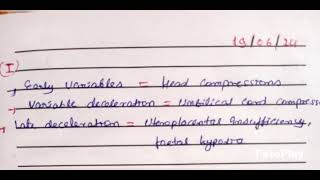 19/06/24
(I)
→ Early variables = Head compressions
→ Variable deceleration = Umbilical cord compress
→ Late deceleration = Uteroplacental Insufficiency,
foetal hypoxia